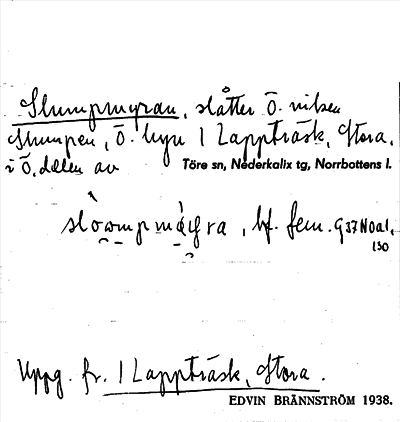 Slumpmyran, slåtter Ö. viken
Slumpen, Ö. byn 1 Lappträsk, Stora.
i Ö. delen av Töre sn, Nederkalix tg, Norrbottens l.
bf. fem.
Uppg. fr. 1 Lappträsk, Stora.
EDVIN BRÄNNSTRÖM 1938.